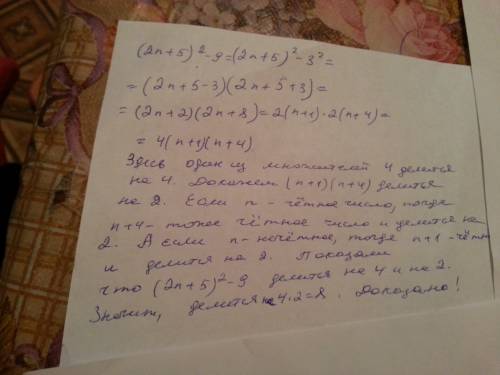 (2n+5)²-9=(2n+5)²-3²=
=(2n+5-3)(2n+5+3)=
=(2n+2)(2n+8)=2(n+1)·2(n+4)=
=4(n+1)(n+4)
Здесь один из множителей 4 делится
на 4. Докажем (n+1)(n+4) делится
на 2. Если n - чётное число, тогда
n+4 - тоже чётное число и делится на
2. А если n - нечётное, тогда n+1 - чётн
и делится на 2. Показали
что (2n+5)²-9 делится на 4 и на 2.
Значит, делится на 4·2=8. Доказано!